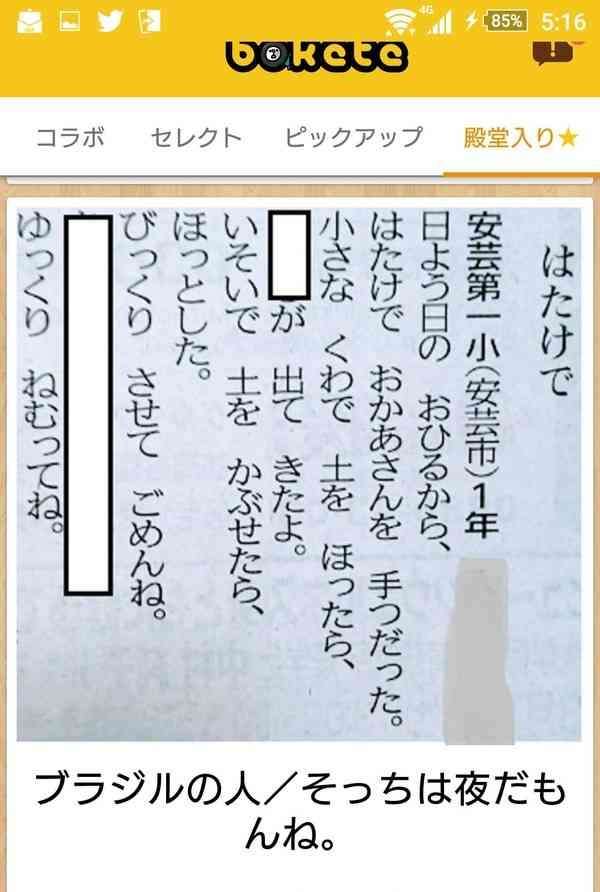 4G
85%
5:16
bokete
コラボ
セレクト
ピックアップ
殿堂入り★
はたけで
安芸第一小(安芸市)1年
日よう日の おひるから、
はたけで おかあさんを 手つだった。
小さな くわで 土を ほったら、
が 出て きたよ。
いそいで 土を かぶせたら、
ほっとした。
びっくり させて ごめんね。
ゆっくり ねむってね。
ブラジルの人／そっちは夜だも
んね。